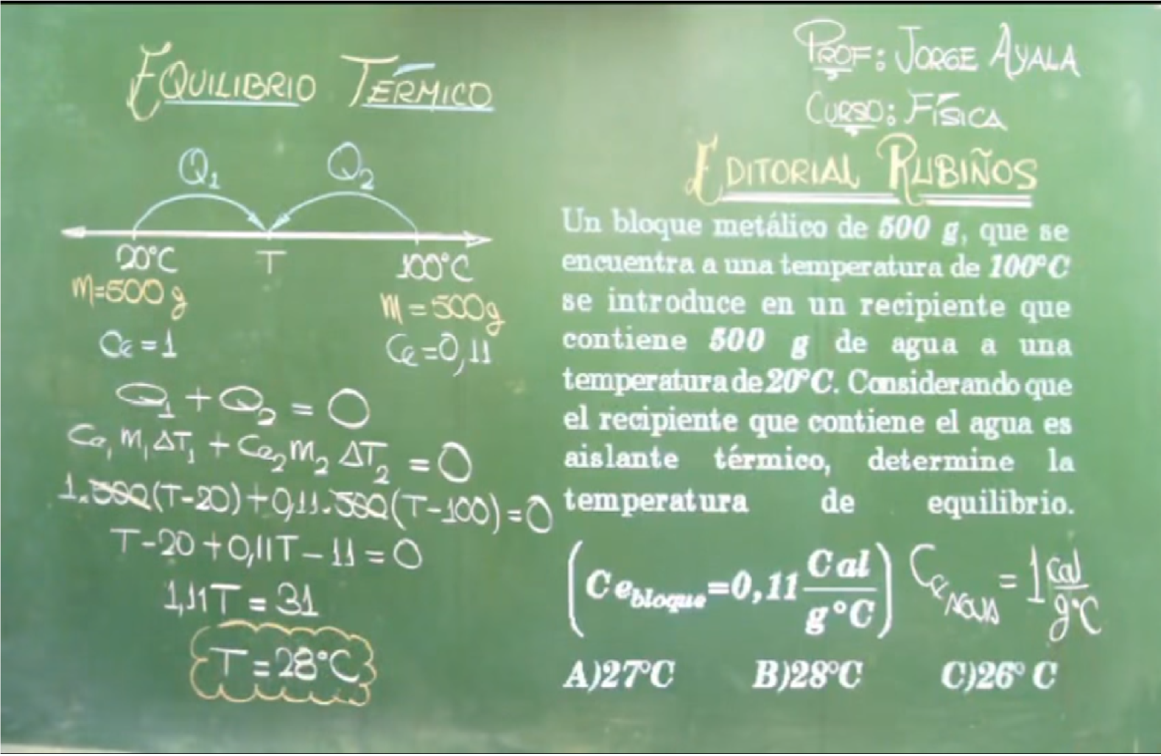 EQUILIBRIO TÉRMICO
Q₁ Q₂
20°C T 100°C
m=500 g m=500g
Ce=1 Ce=0,11
Q₁+Q₂=0
Ce₁ m₁ ΔT₁ + Ce₂ m₂ ΔT₂ = 0
1.500(T-20)+0,11.500(T-100)=0
T-20+0,11T-11=0
1,11T=31
T=28°C
PROF: JORGE AYALA
CURSO: FÍSICA
EDITORIAL RUBIÑOS
Un bloque metálico de 500 g, que se
encuentra a una temperatura de 100°C
se introduce en un recipiente que
contiene 500 g de agua a una
temperatura de 20°C. Considerando que
el recipiente que contiene el agua es
aislante térmico, determine la
temperatura de equilibrio.
(Ce_bloque=0,11 Cal/g°C) Ce_AGUA = 1 cal/g°C
A)27°C B)28°C C)26° C